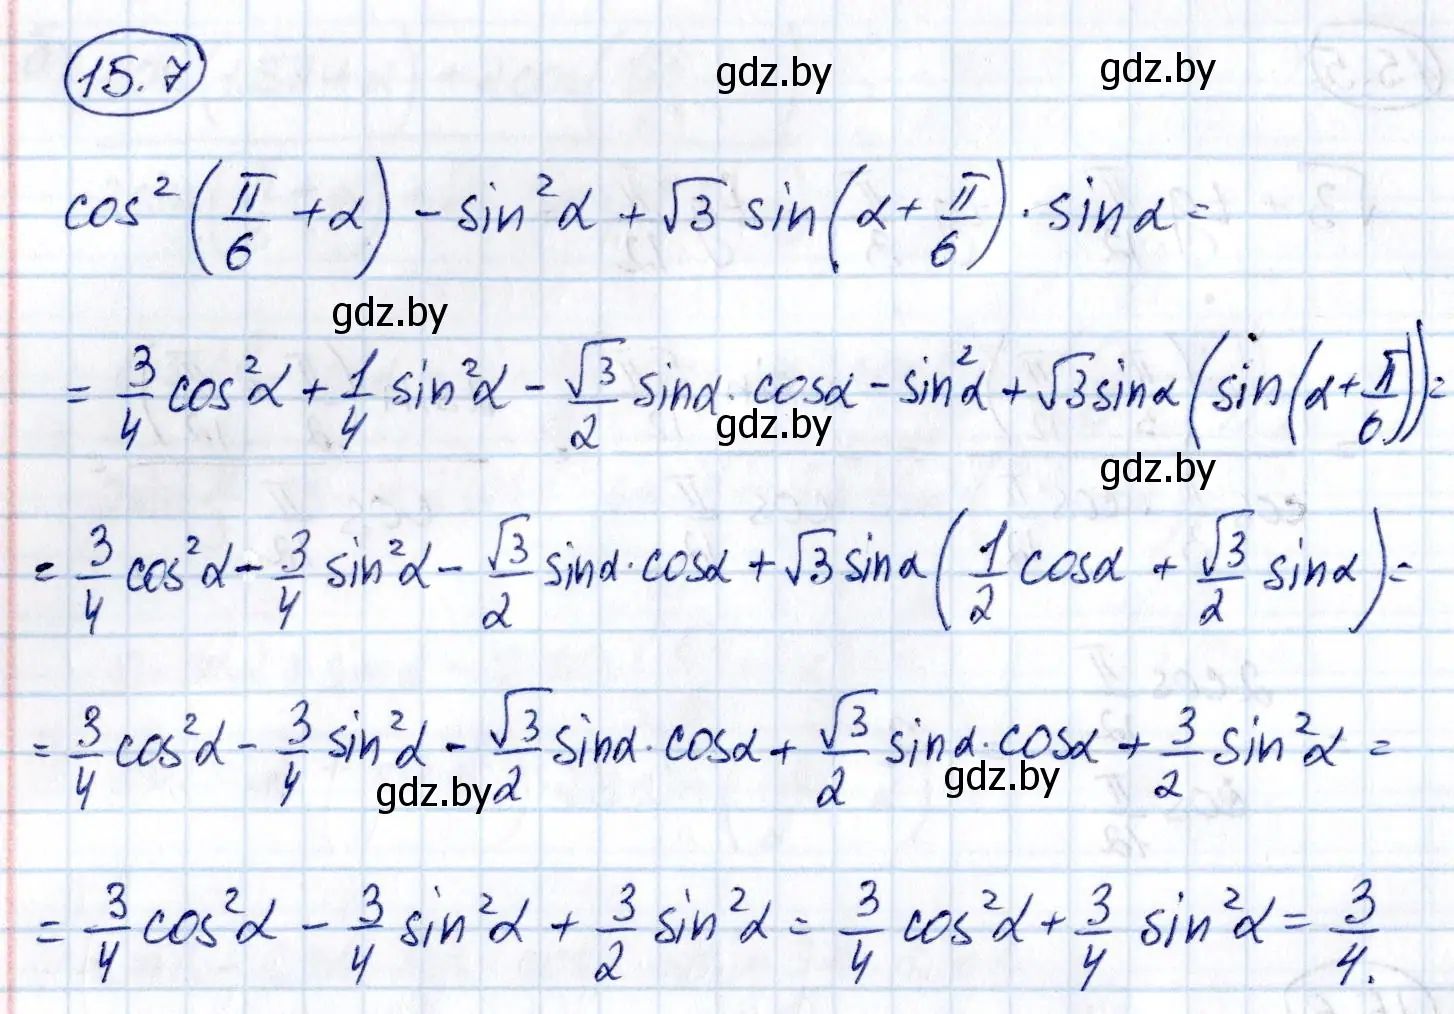 15.7 gdz.by gdz.by
cos²(π/6 + α) - sin²α + √3 sin(α + π/6) · sinα =
gdz.by
= 3/4 cos²α + 1/4 sin²α - √3/2 sinα · cosα - sin²α + √3 sinα (sin(α + π/6)) =
gdz.by
gdz.by
= 3/4 cos²α - 3/4 sin²α - √3/2 sinα · cosα + √3 sinα (1/2 cosα + √3/2 sinα) =
= 3/4 cos²α - 3/4 sin²α - √3/2 sinα · cosα + √3/2 sinα · cosα + 3/2 sin²α =
gdz.by gdz.by
= 3/4 cos²α - 3/4 sin²α + 3/2 sin²α = 3/4 cos²α + 3/4 sin²α = 3/4.